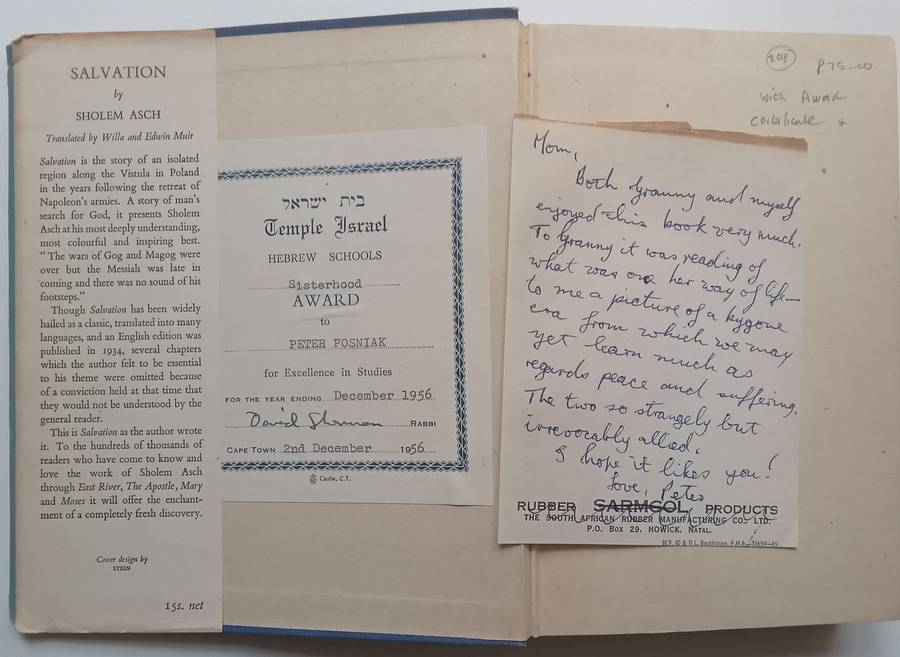 SALVATION
by
SHOLEM ASCH
Translated by Willa and Edwin Muir
Salvation is the story of an isolated
region along the Vistula in Poland
in the years following the retreat of
Napoleon's armies. A story of man's
search for God, it presents Sholem
Asch at his most deeply understanding,
most colourful and inspiring best.
"The wars of Gog and Magog were
over but the Messiah was late in
coming and there was no sound of his
footsteps."
Though Salvation has been widely
hailed as a classic, translated into many
languages, and an English edition was
published in 1934, several chapters
which the author felt to be essential
to his theme were omitted because
of a conviction held at that time that
they would not be understood by the
general reader.
This is Salvation as the author wrote
it. To the hundreds of thousands of
readers who have come to know and
love the work of Sholem Asch
through East River, The Apostle, Mary
and Moses it will offer the enchant-
ment of a completely fresh discovery.
Cover design by
STEIN
15s. net
בית ישראל
Temple Israel
HEBREW SCHOOLS
Sisterhood
AWARD
to
PETER POSNIAK
for Excellence in Studies
FOR THE YEAR ENDING December 1956
David Sherman RABBI
CAPE TOWN 2nd December 1956
Castle, C.T.
203
P75-00
with Award
certificate
Mom,
Both Granny and myself
enjoyed this book very much.
To Granny it was reading of
what was once her way of life—
to me a picture of a bygone
era from which we may
yet learn much as
regards peace and suffering.
The two so strangely but
irrevocably allied.
I hope it likes you!
Love, Peter
RUBBER SARMCOL PRODUCTS
THE SOUTH AFRICAN RUBBER MANUFACTURING CO., LTD.
P.O. Box 29, HOWICK, NATAL.